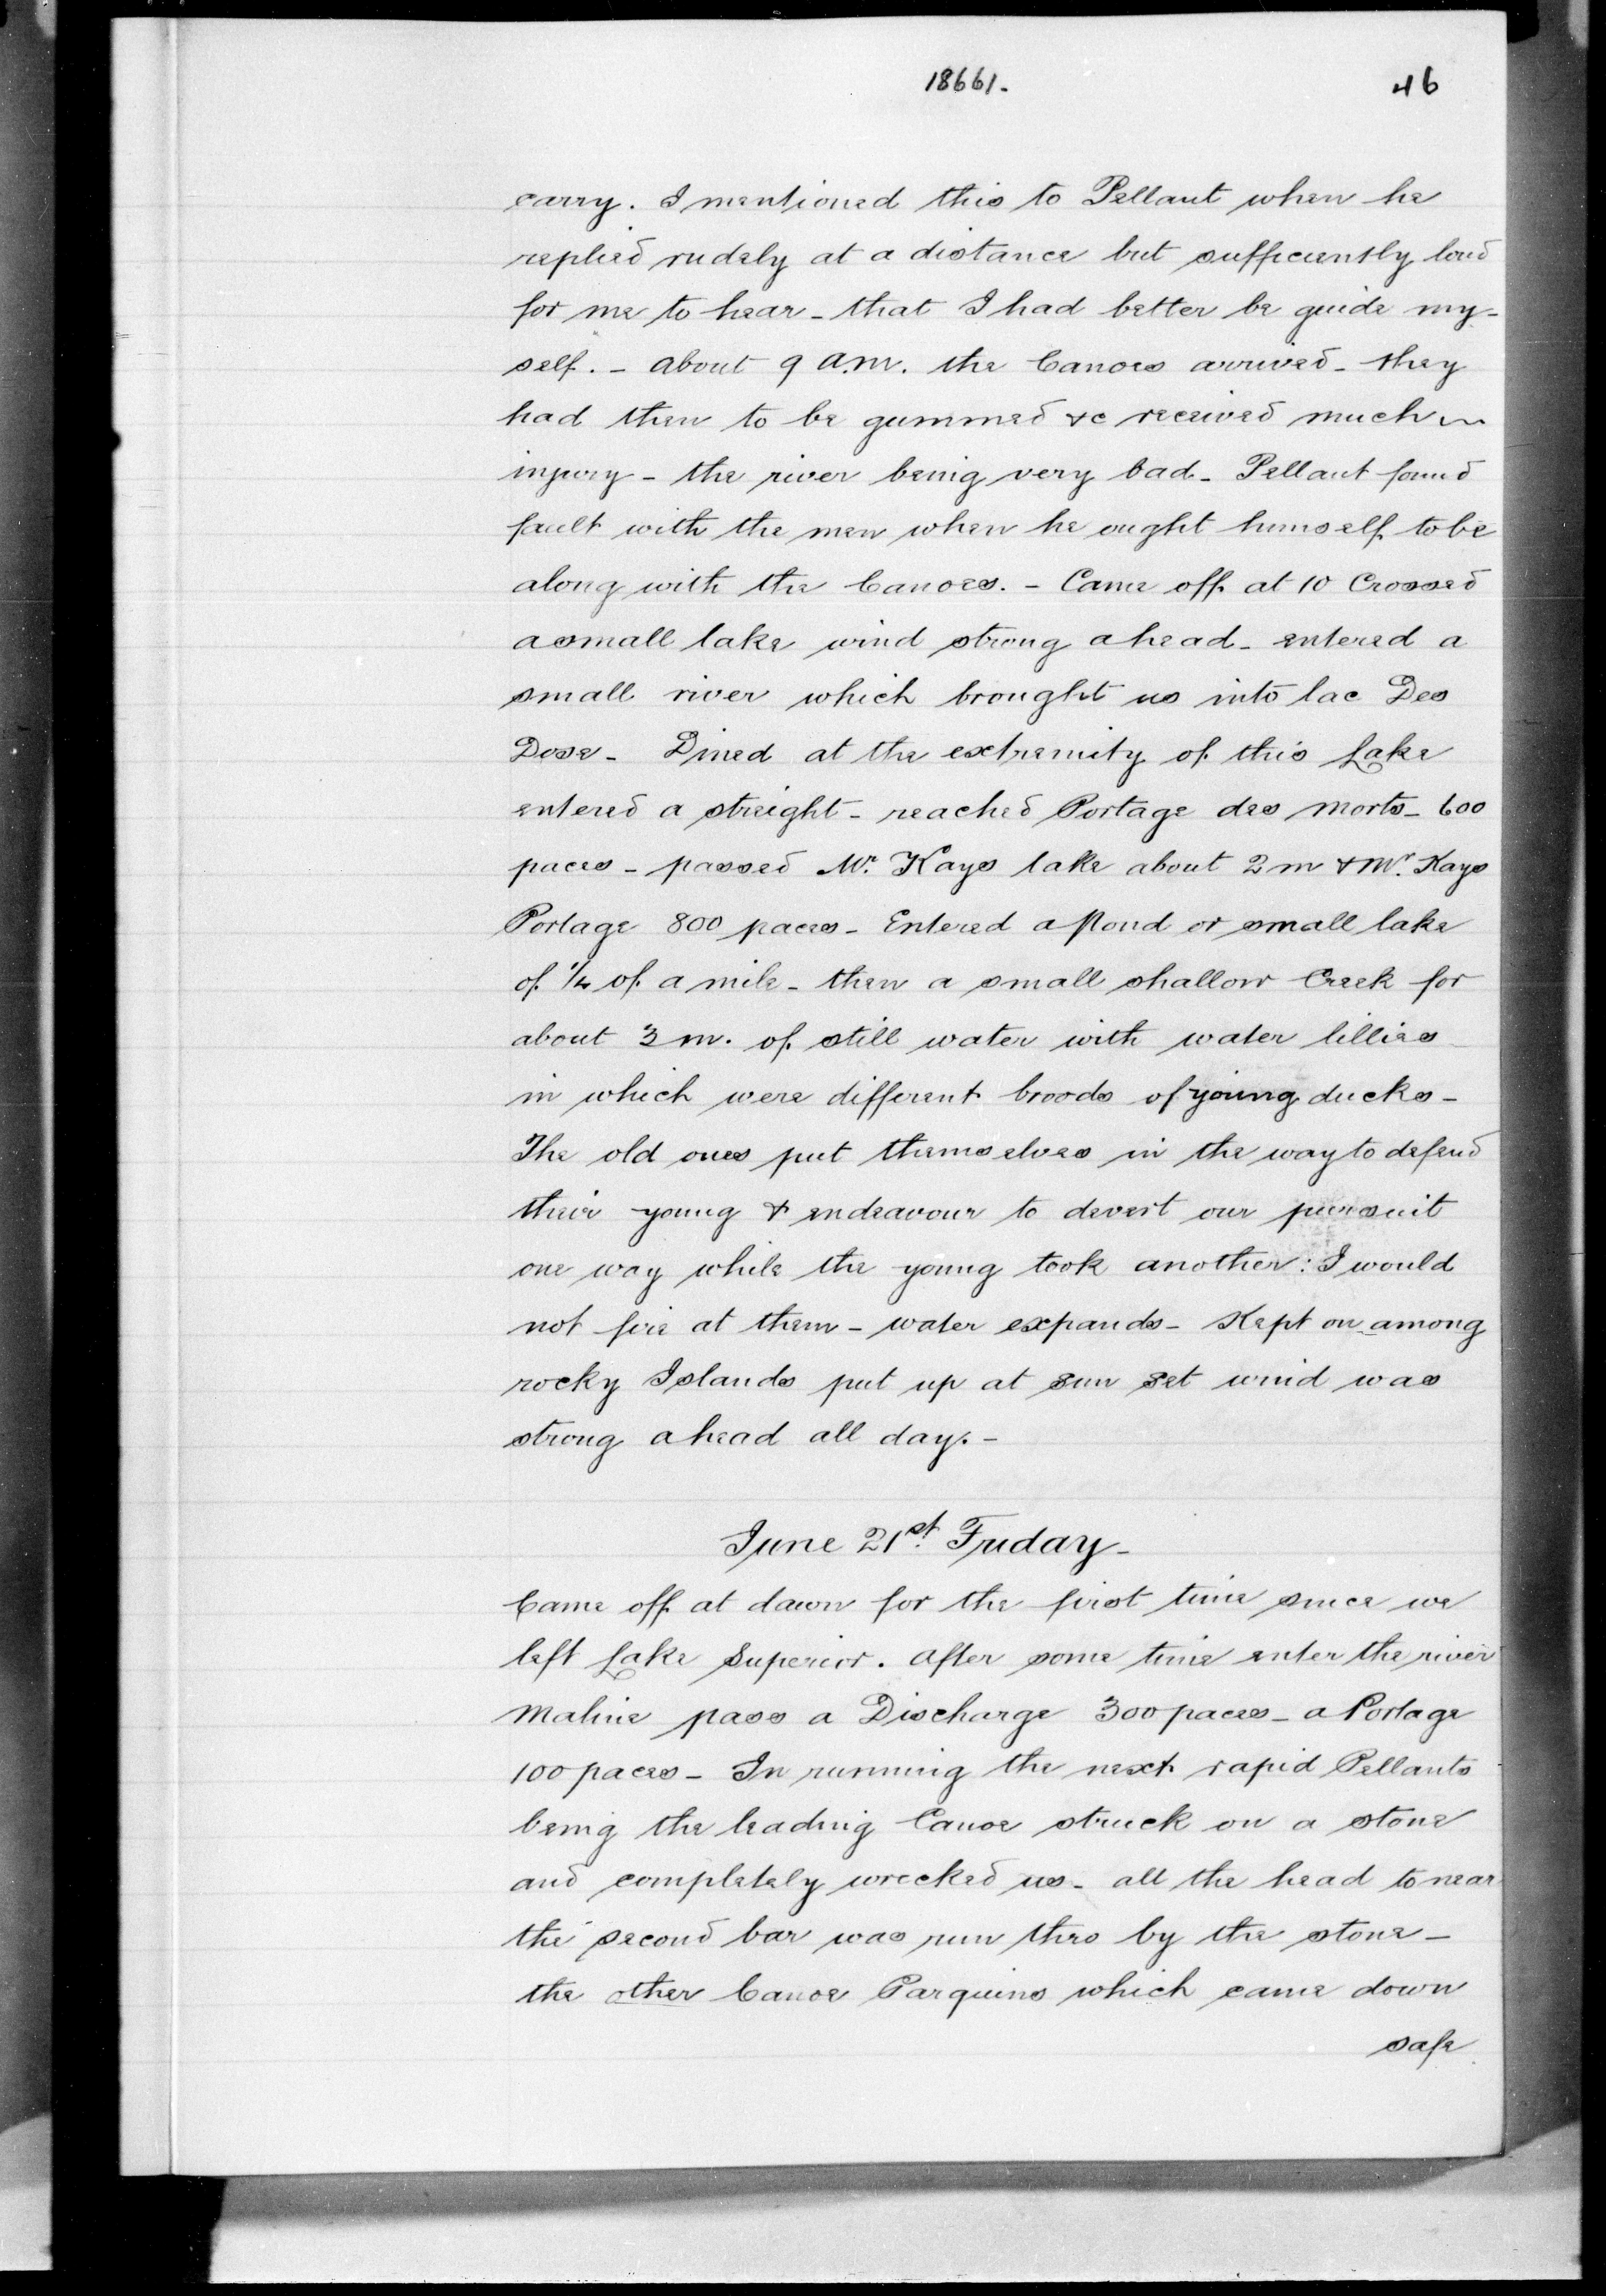 18661.
46
carry. I mentioned this to Pellant when he
replied rudely at a distance but sufficiently loud
for me to hear - that I had better be guide my-
self. - about 9 a.m. the Canoes arrived - they
had then to be gummed &c received much
injury - the river being very bad - Pellant found
fault with the men when he ought himself to be
along with the Canoes. - Came off at 10 Crossed
a small lake wind strong ahead - entered a
small river which brought us into lac Des
Dose - Dined at the extremity of this Lake
entered a streight - reached Portage des Morts - 600
paces - passed Mr. Kays lake about 2 m & Mr. Kays
Portage 800 paces - Entered a Pond or small lake
of 1/4 of a mile - then a small shallow Creek for
about 3 m. of still water with water lillies
in which were different broods of young ducks -
The old ones put themselves in the way to defend
their young & endeavour to devert our pursuit
one way while the young took another: I would
not fire at them - water expands - Kept on among
rocky Islands put up at sun set wind was
strong ahead all day. -
June 21st. Friday -
Came off at dawn for the first time since we
left Lake Superior. After some time enter the river
Maline pass a Discharge 300 paces - a Portage
100 paces - In running the next rapid Pellants
being the leading Canoe struck on a stone
and completely wrecked us - all the head to near
the second bar was run thro by the stone -
the other Canoe Parquins which came down
safe